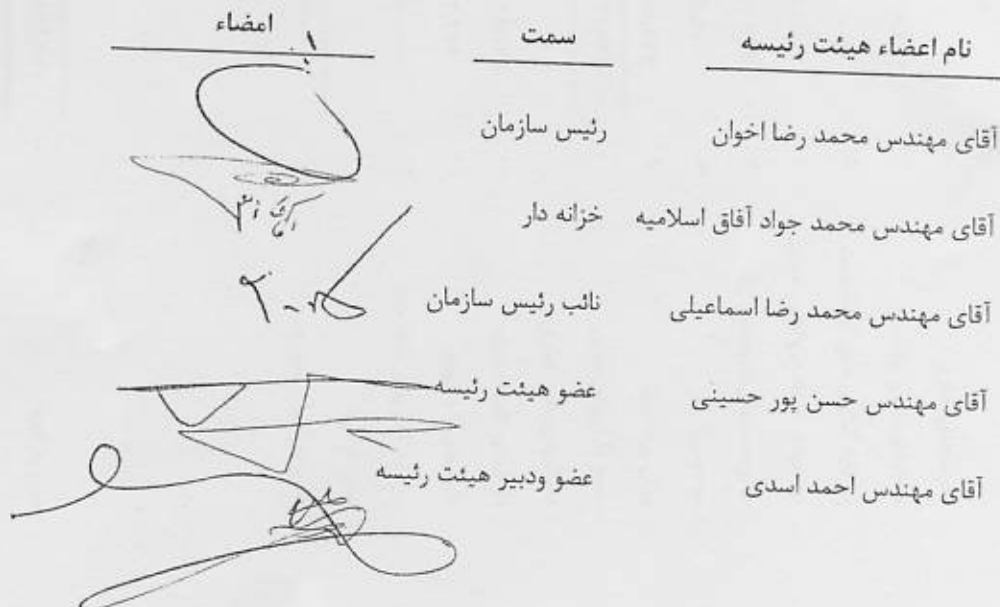 نام اعضاء هیئت رئیسه سمت امضاء
آقای مهندس محمد رضا اخوان رئیس سازمان
آقای مهندس محمد جواد آفاق اسلامیه خزانه دار
آقای مهندس محمد رضا اسماعیلی نائب رئیس سازمان
آقای مهندس حسن پور حسینی عضو هیئت رئیسه
آقای مهندس احمد اسدی عضو ودبیر هیئت رئیسه